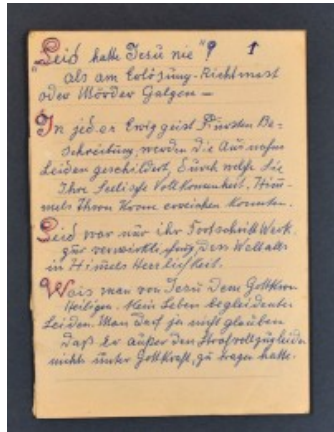 "Leid hatte Jesŭ nie"? 1
als am Erlösung-Richtmast
oder Mörder Galgen —
In jeder Ewiggeist Fürsten Be-
schreibung, werden die Ausnahm
Leiden geschildert, durch welche Sie
Ihre Seelische Vollkommenheit, Him-
mels Thron Krone erreichen konnten.
Leid war nur ihr Fortschritt Werk.
zur verwirklichung des Weltalls
in Himels Herrlichkeit.
Weis man von Jesŭ Dem Gottkron
Heiligen. Kein Leben begleidenter
Leiden. Man darf ja nicht glauben
Daß Er außer den Strafvollzugleiden
nichts unter Gottkraft, zu tragen hatte.